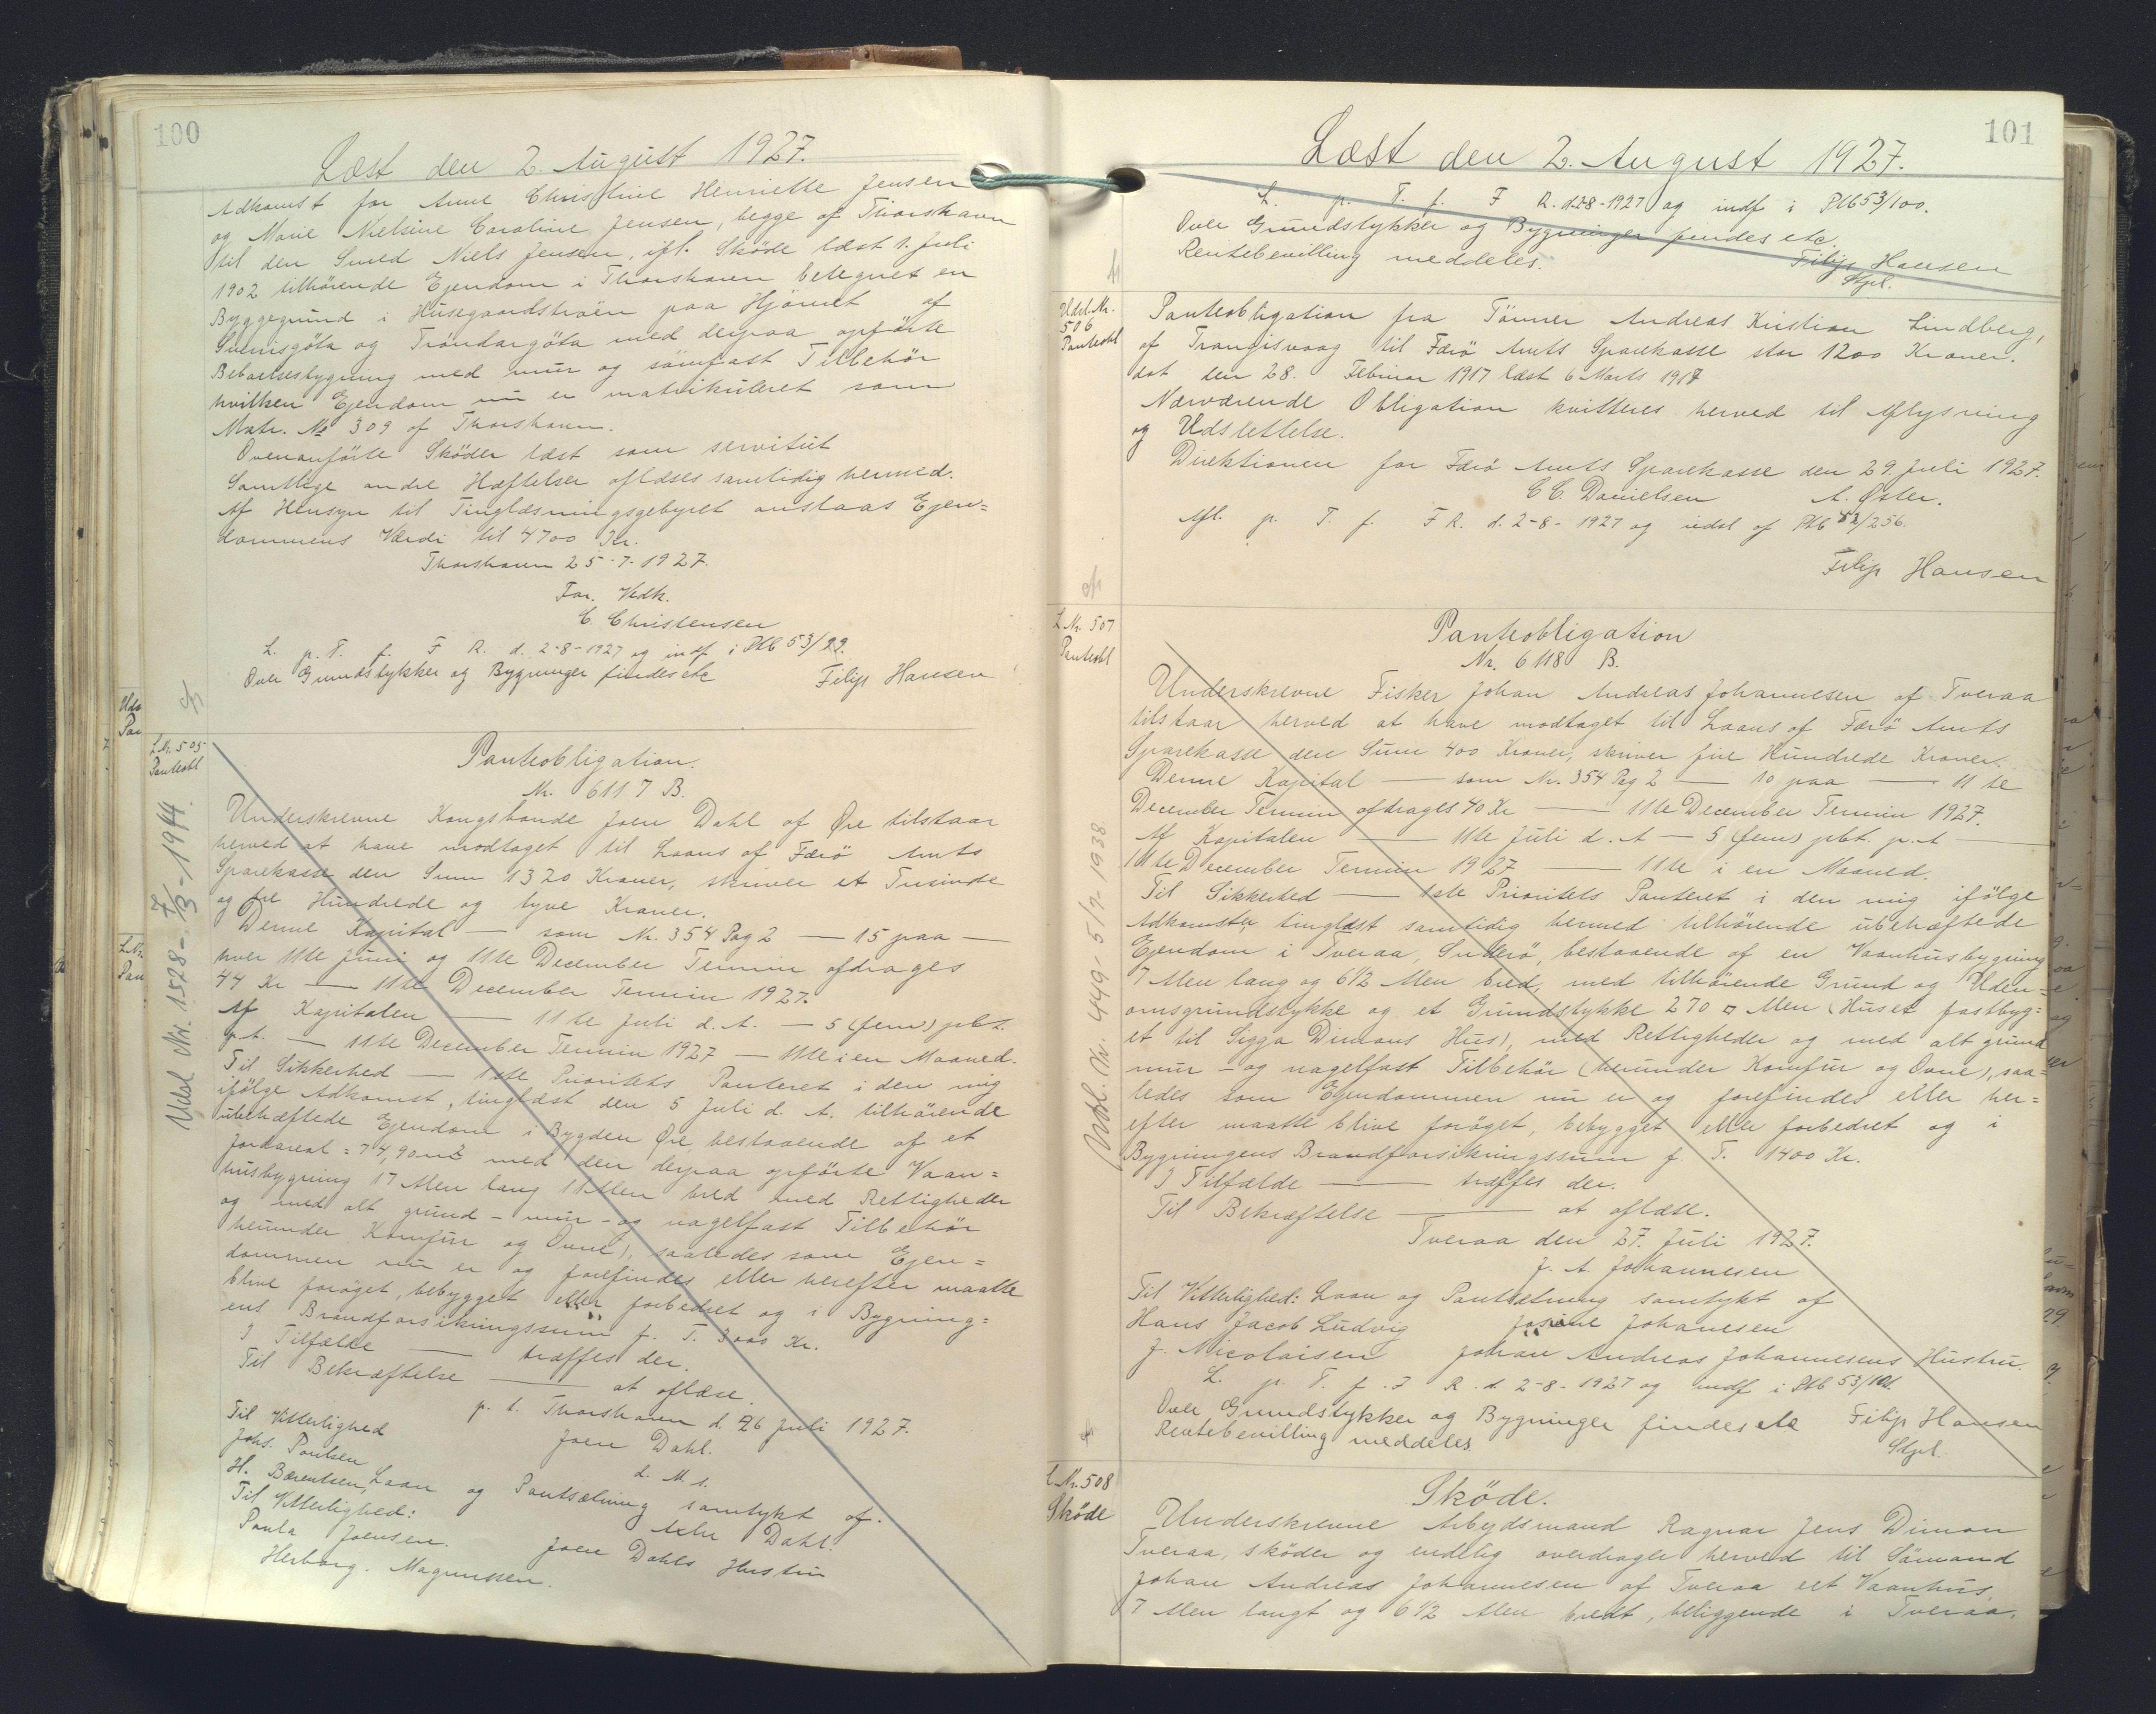 100
Læst den 2. August 1927.
Adkomst for Anne Christine Henriette Jensen
og Marie Nielsine Caroline Jensen, begge af Thorshavn
til den Smed Niels Jensen, ifl. Sköde læst 1. Juli
1902 tilhörende Ejendom i Thorshavn betegnet en
Byggegrund i Husegaardströen paa Hjörnet af
Sverrisgöta og Trondargöta med derpaa opförte
Beboelsesbygning med mur og sömfast Tilbehör
hvilken Ejendom nu er matrikuleret som
Matr. No 309 af Thorshavn.
Ovenanförte Sköder læst som servitut
Samtlige andre Hæftelser aflæses samtidig hermed.
Af Hensyn til Tinglæsningsgebyret anslaas Ejen=
dommens Værdi til 4700 Kr.
Thorshavn 25-7-1927.
For. Vedk.
C. Christensen
L. p. T. f. F R. d. 2-8-1927 og indf i Ptb 53/99.
Over Grundstykker og Bygninger findes etc Filip Hansen
L Nr. 505
Panteobl
Udsl Nr. 1528-7/3-1944.
Panteobligation.
Nr. 6117 B.
Underskrevne Kongsbonde Joen Dahl af Øre tilstaar
herved at have modtaget til Laans af Færö Amts
Sparekasse den Sum 1320 Kroner, skriver et Tusinde
og tre Hundrede og tyve Kroner.
Denne Kapital — som Nr. 354 Pag 2 — 15 paa —
hver 11te Juni og 11te December Termin afdrages
44 Kr — 11te December Termin 1927.
Af Kapitalen — 11te Juli d. A. — 5 (fem) pCt.
p.A. — 11te December Termin 1927 — 11te i en Maaned.
Til Sikkerhed — 1ste Prioritets Panteret i den mig
ifölge Adkomst, tinglæst den 5 Juli d. A. tilhörende
ubehæftede Ejendom i Bygden Øre, bestaaende af et
Jordareal = 74,90 m2 med den derpaa opförte Vaan=
husbygning 17 Alen lang 11 Alen bred med Rettigheder
og med alt grund - mur - og nagelfast Tilbehör
herunder Komfur og Ovne), saaledes som Ejen=
dommen nu er og forefindes eller herefter maatte
blive foröget, bebygget eller forbedret og i Bygning=
ens Brandforsikringssum p. T. 3000 Kr.
I Tilfælde — træffes der.
Til Bekræftelse — at aflæse.
p. t. Thorshavn d. 26 Juli 1927.
Til Vitterlighed Joen Dahl.
Johs. Poulsen d. M. s.
H. Bærentsen, Laan og Pantsætning samtykt af.
Til Vitterlighed: Dahl.
Paula Joensen. Joen Dahls Hustru
Herborg. Magnussen.
101
Læst den 2. August 1927.
L. p. T. f. F R. d. 2-8-1927 og indf i Ptb 53/100.
Over Grundstykker og Bygninger findes etc.
Rentebevilling meddeles. Filip Hansen
Stpl.
Udsl. Nr.
506
Panteobl
Panteobligation fra Tömrer Andreas Kristian Lindberg,
af Trangisvaag til Færö Amts Sparekasse stor 1200 Kroner.
dat den 28. Februar 1917 læst 6 Marts 1917
Nærværende Obligation kvitteres herved til Aflysning
og Udslettelse.
Direktionen for Færö Amts Sparekasse den 29. Juli 1927.
C C. Danielsen A. Øster.
Afl. p. T. f. F R. d. 2-8-1927 og udsl af Ptb 42/256.
Filip Hansen
L Nr. 507
Panteobl
Udsl. Nr. 449-5/7-1938
Panteobligation
Nr. 6118 B.
Underskrevne Fisker Johan Andreas Johannesen af Tveraa
tilstaar herved at have modtaget til Laans af Færö Amts
Sparekasse den Sum 400 Kroner, skriver fire Hundrede Kroner.
Denne Kapital — som Nr. 354 Pag 2 — 10 paa — 11 te
December Termin afdrages 40 Kr — 11te December Termin 1927.
Af Kapitalen — 11te Juli d. A — 5 (fem) pCt. p. A —
11te December Termin 1927 — 11te i en Maaned.
Til Sikkerhed — 1ste Prioritets Panteret i den mig ifölge
Adkomster tinglæst samtidig hermed tilhörende ubehæftede
Ejendom i Tveraa, Suderö, bestaaende af en Vaanhusbygning
7 Alen lang og 6 1/2 Alen bred, med tilhörende Grund og Uden=
omsgrundstykke og et Grundstykke 270 □ Alen (Huset fastbyg=
et til Sigga Dimons Hus), med Rettigheder og med alt grund
mur - og nagelfast Tilbehör (herunder Komfur og Ovne), saa=
ledes som Ejendommen nu er og forefindes eller her=
efter maatte blive foröget, bebygget eller forbedret og i
Bygningens Brandforsikringssum p. T. 1400 Kr.
I Tilfælde — træffes der.
Til Bekræftelse — at aflæse.
Tveraa den 27. Juli 1927.
J. A. Johannesen
Til Vitterlighed: Laan og Pantsætning samtykt af
Hans Jacob Ludvig Josine Johanesen
J. Nicolaisen Johan Andreas Johannesens Hustru.
L. p. T. f. F R. d. 2-8-1927 og indf i Ptb 53/101.
Over Grundstykker og Bygninger findes etc Filip Hansen
Rentebevilling meddeles Stpl.
L Nr. 508
Sköde
Sköde.
Underskrevne Arbejdsmand Ragnar Jens Dimon
Tveraa, sköder og endelig overdrager herved til Sömand
Johan Andreas Johannesen af Tveraa eet Vaanhus,
7 Alen langt og 6 1/2 Alen bredt, beliggende i Tveraa,